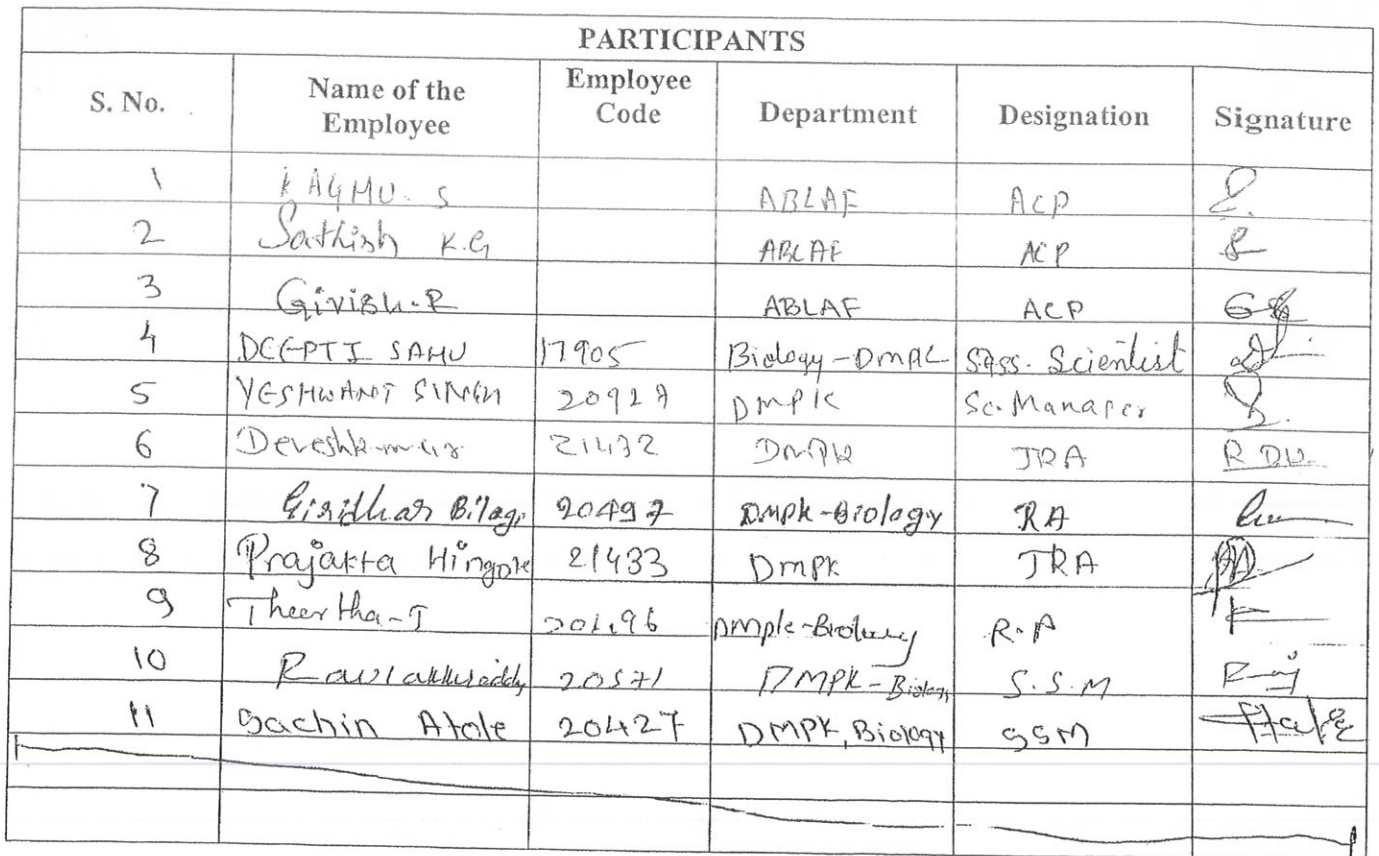 PARTICIPANTS
S. No. Name of the Employee Employee Code Department Designation Signature
1 S ABLAF ACP
2 Sathish K.G ABLAF ACP
3 Girish.R ABLAF ACP
4 DEEPTI SAHU 17905 Biology-DMPK Scientist
5 YESHWANT SINGH DMPK Manager
6 Deveshkumar 21432 DMPK JRA
7 Giridhar Bilagi 20497 DMPK-Biology RA
8 Prajakta Hingole 21433 DMPK JRA
9 Theertha-J DMPK-Biology R.A
10 20571 DMPK-Biology S.S.M
11 Sachin Atole 20427 DMPK, Biology SSM